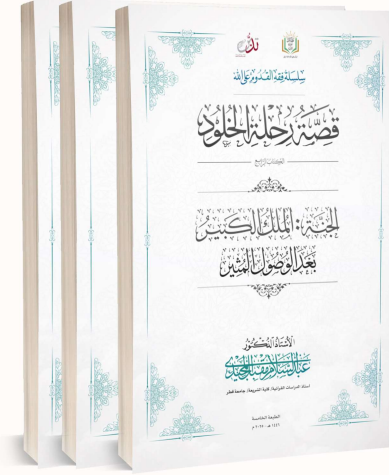 سلسلة فقه القدوم على الله
قصة رحلة الخلود
الكتاب الرابع
الجنة: الملك الكبير
بعد الوصول المثير
الأستاذ الدكتور
عبد السلام مقبل المجيدي
أستاذ الدراسات القرآنية، كلية الشريعة، جامعة قطر
الطبعة الخامسة